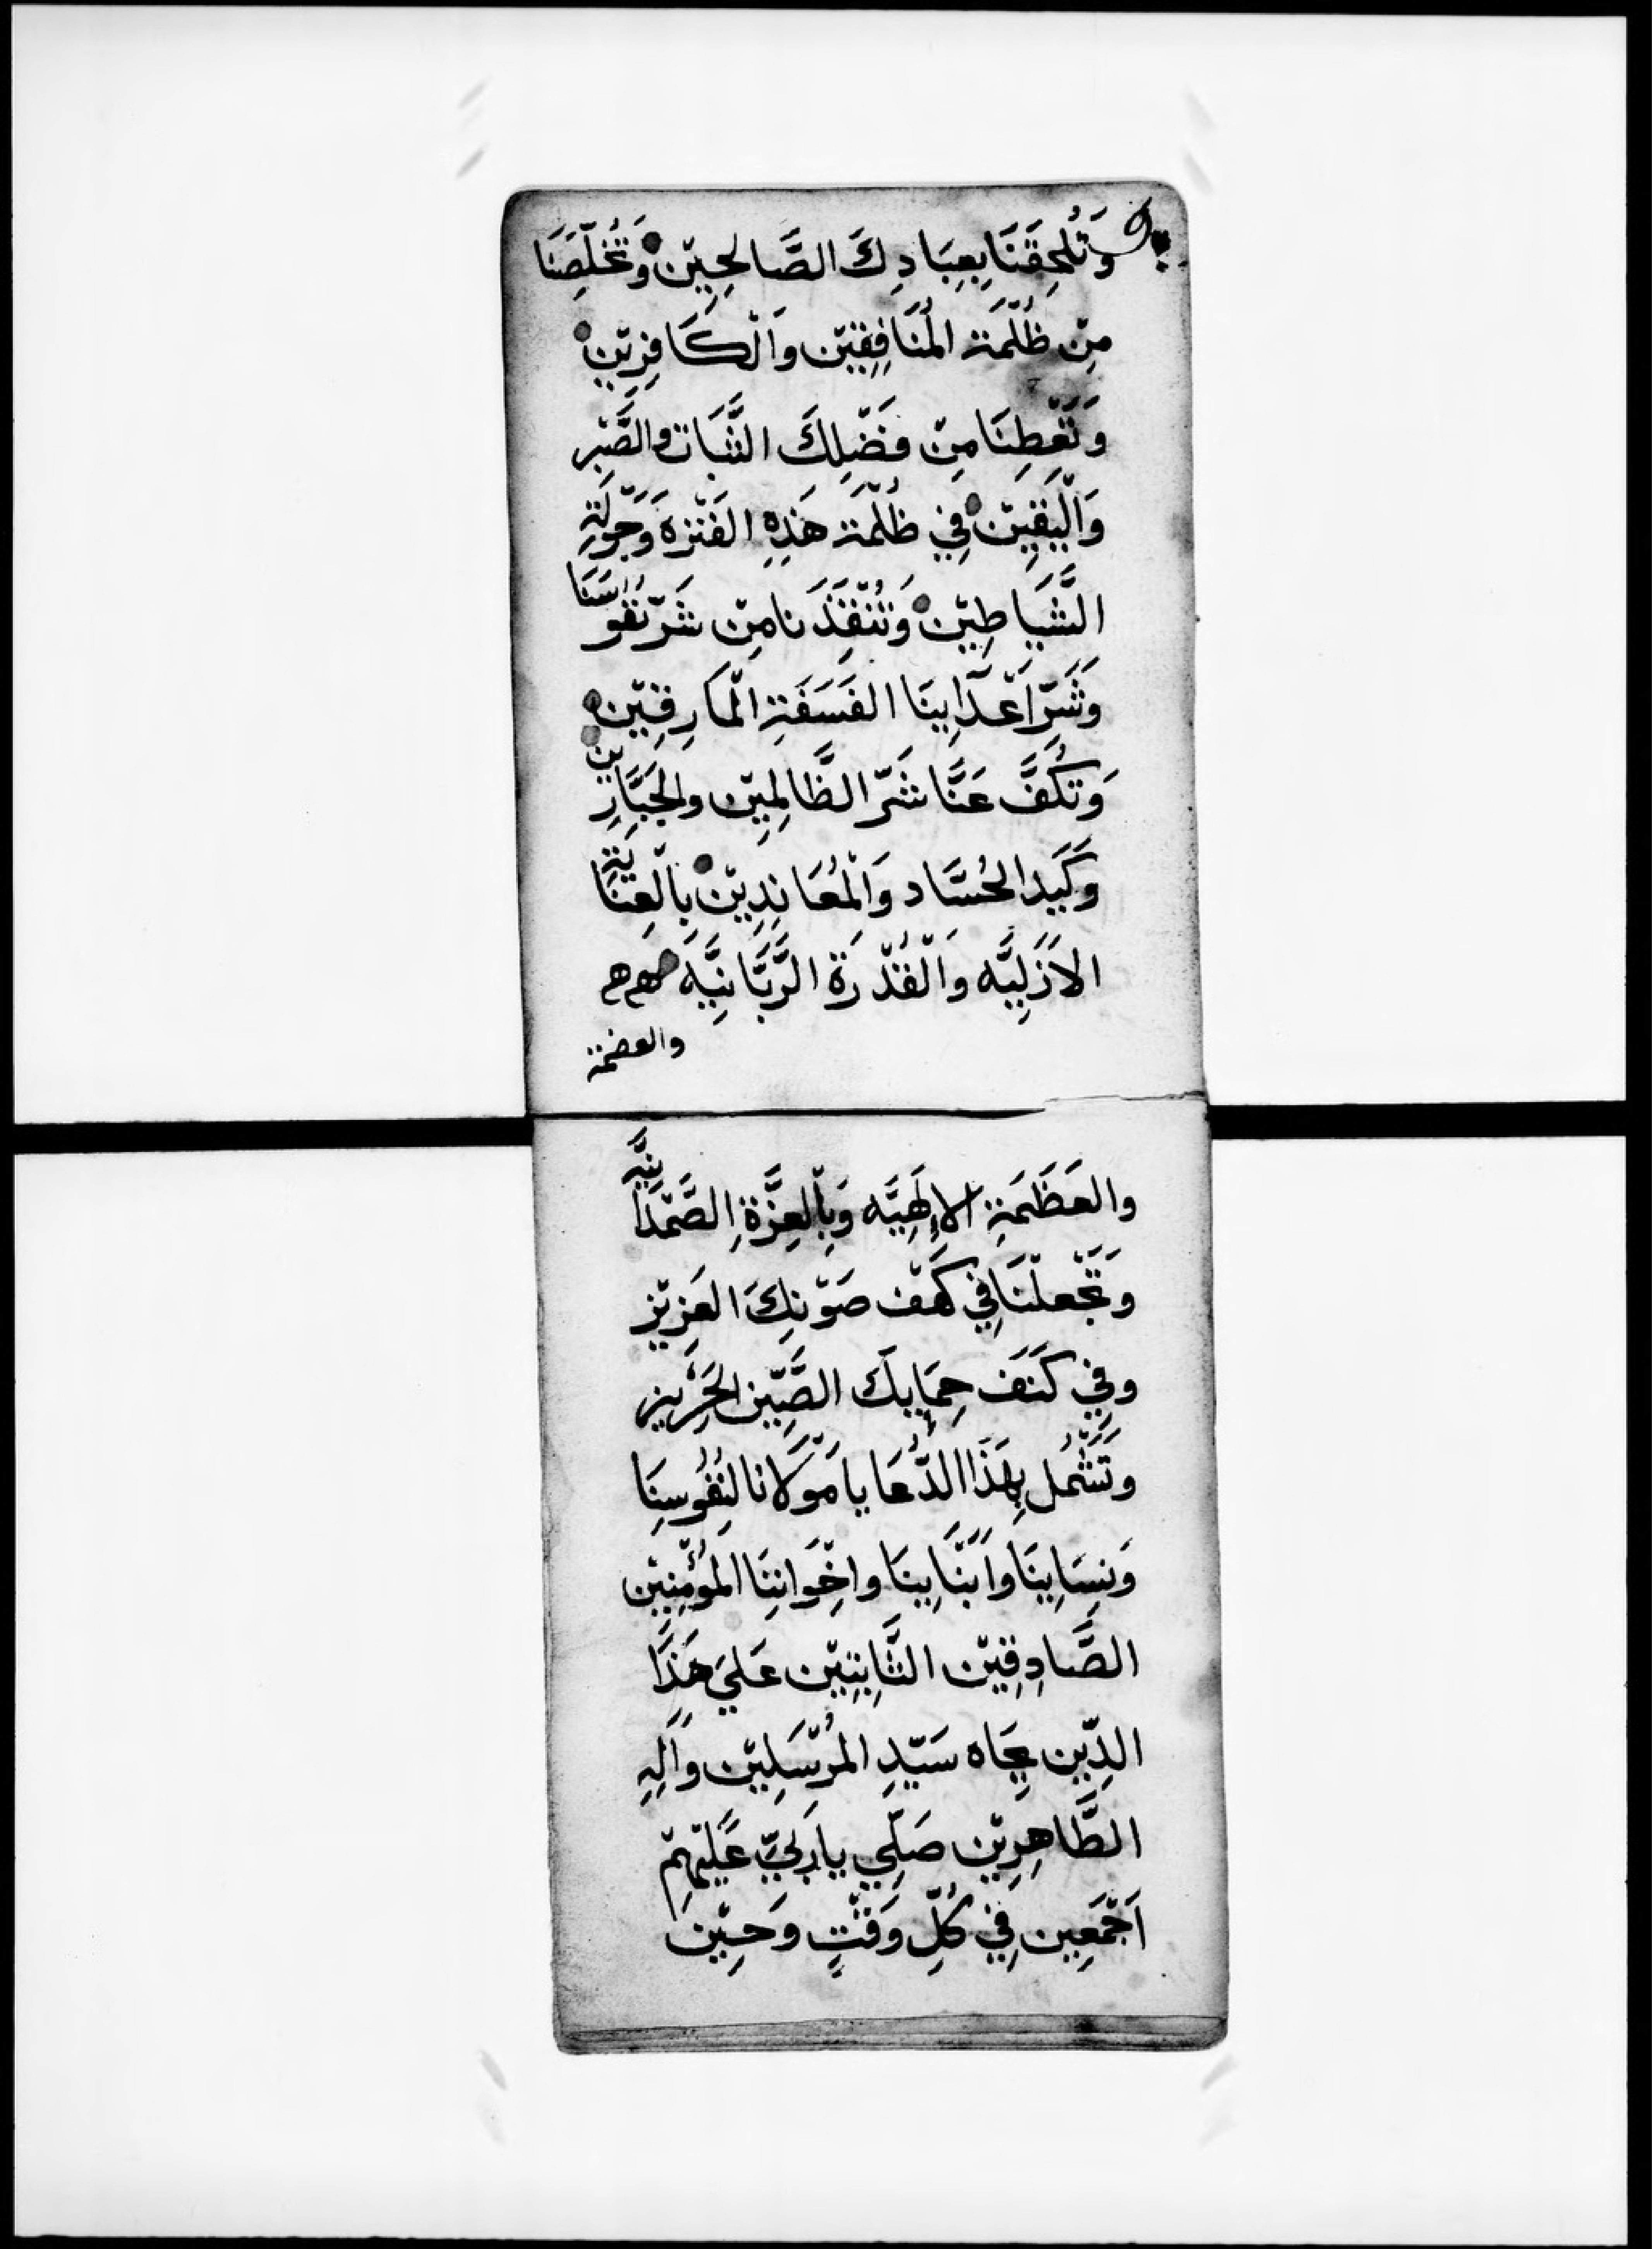 وَتُلحِقَنَا بِعِبَادِكَ الصَّالِحِيْن وَتُخَلِّصَنَا
مِنْ ظُلْمَة المُنَافِقِيْن وَالْكَافِرِيْن
وَتَعْطِنَا مِنْ فَضْلِكَ الثَّبَات والصَّبْر
وَالْيَقِيْن فِي ظُلْمَة هَذِهِ الفَتْرَه وَجَوْلَةِ
الشَّيَاطِيْن وَتُنْقِذَنا مِنْ شَرّ نُفُوسَنَا
وَشَرّ اَعْدَايِنَا الفَسَقَةِ الْمَارِقِيْن
وَتَكُفَّ عَنَّا شَرّ الظَّالِمِيْن والجَبَّارِين
وَكَيَد الحُسَّاد وَالْمُعَانِدِيْن بِالْعِنَايَةِ
الاَزَلِيَّه وَالْقُدْرَة الرَّبَّانِيَّه
والعضمة
والعَظَمَةِ الاِلَهِيَّه وَبِالْعِزَّةِ الصَّمَدَانِيَّه
وَتَجْعلْنَا فِي كَهَف صَوْنِكَ العَزِيْز
وفِي كَنَف حِمَايِكَ الصَّيِّن الحَرِيز
وتَشْمُل بِهَذَا الدُّعَا يا مَوْلَانا لِنُفُوسِنَا
وَنِسَايِنَا وَاَبْنَايِنَا واخِْوَانِنَا المُؤْمِنِيْن
الصَّادِقِيْن الثَّابِتِيْن عَلَي هَذَا
الدِّيْن بِجَاه سَيّدِ المُرْسَلِيْن وَآلِهِ
الطَّاهِرِيْن صَلِّي يارَبِّ عَلَيْهِمْ
اَجْمَعِين فِي كُلِّ وَقْتٍ وَحِيْن